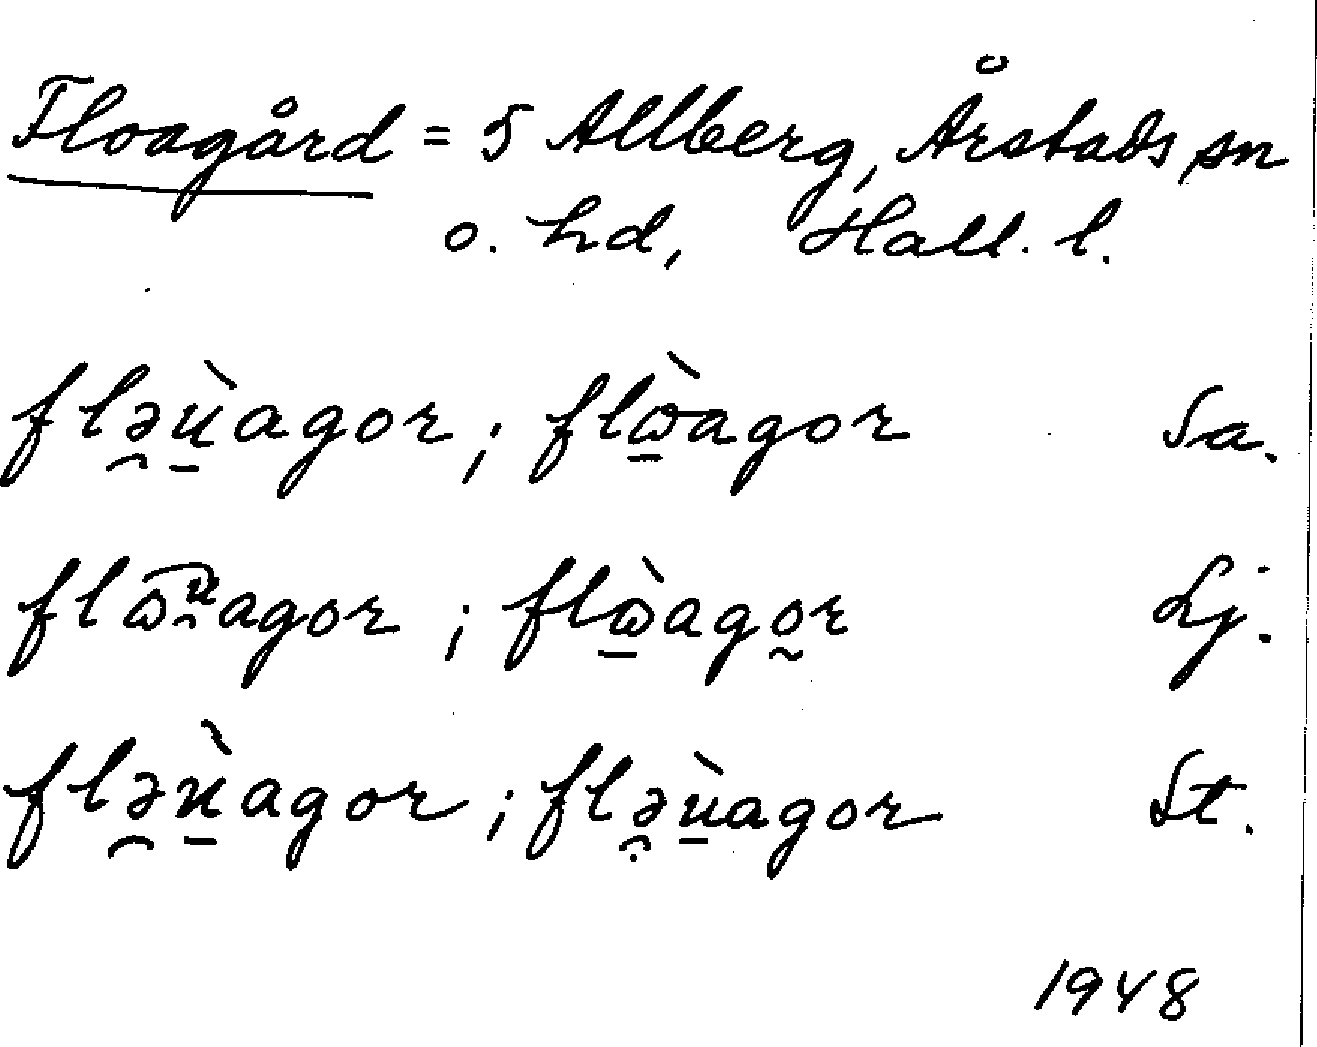 Floagård = 5 Allberg, Årstads sn
o. hd, Hall. l.
flə̯ṳ̀agor; flὼ̠agor Sa.
flωu̯agor; flὼ̠ago̰r Lj.
flə̯ṳ̀agor; flə̯ṳ̀agor St.
1948